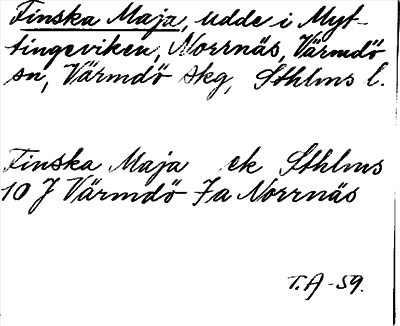 Finska Maja, udde i Myt-
tingeviken, Norrnäs, Värmdö
sn, Värmdö skg, Sthlms l.
Finska Maja ek Sthlms
10 J Värmdö 7a Norrnäs
T.A-59.